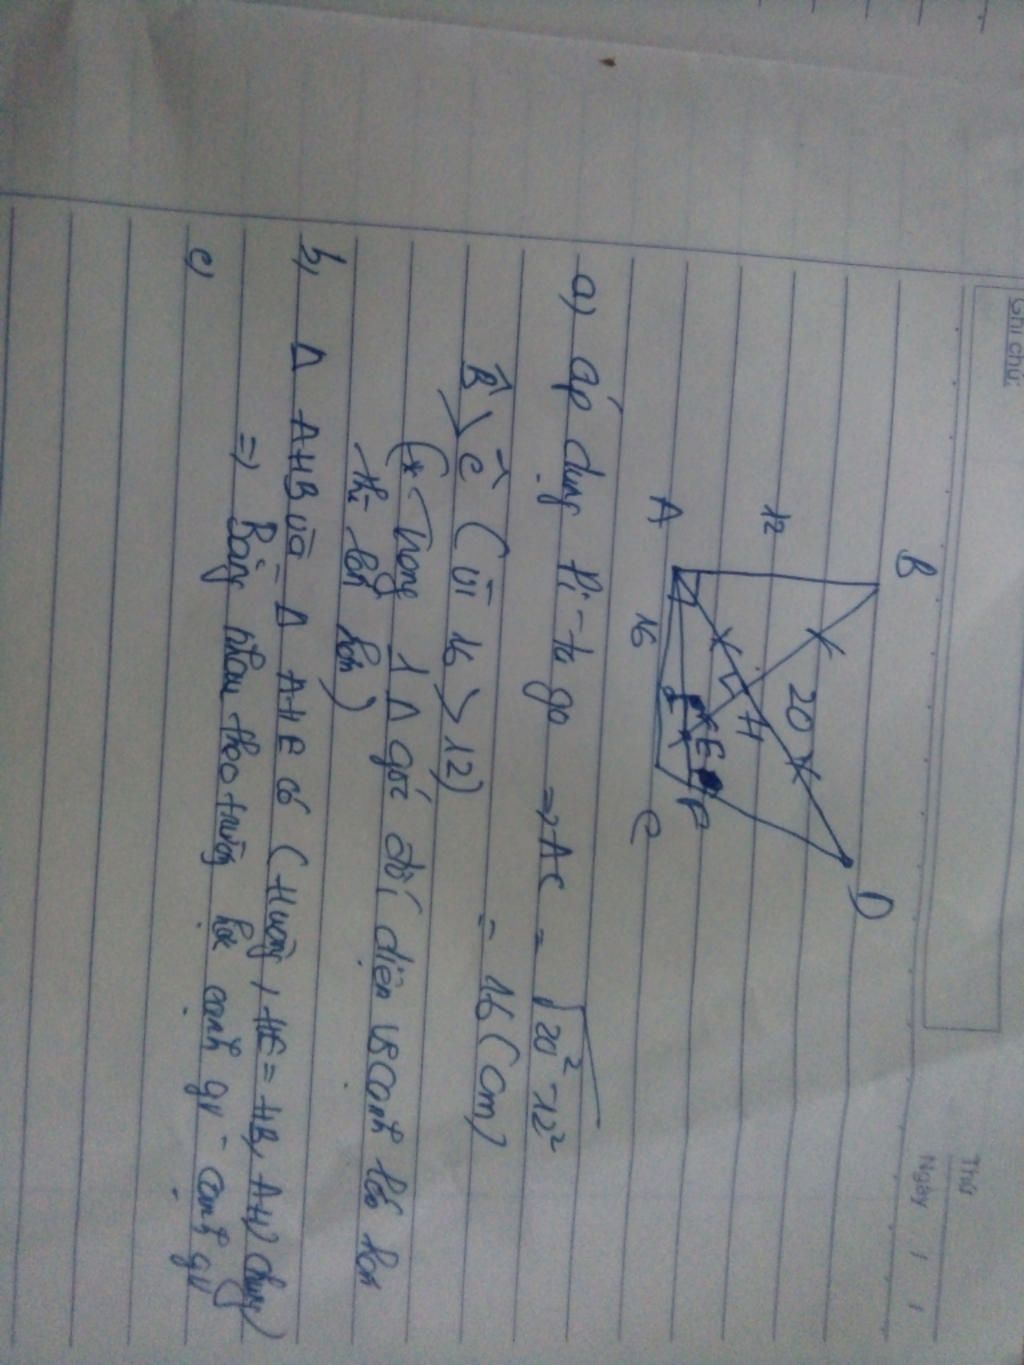 Ghi chú:
Thứ
Ngày / /
B
D
12
20
H
E
F
A
16
C
a) áp dụng Pi-ta go => AC = √20² - 12²
= 16 (cm)
B̂ > Ĉ (vì 16 > 12)
(* Trong 1 Δ góc đối diện vs cạnh lớn hơn
thì lớn hơn)
b, Δ AHB và Δ AHE có (Hvuông, HE = HB, AH chung)
=> Bằng nhau theo trường hợp cạnh gv - cạnh gv
c)